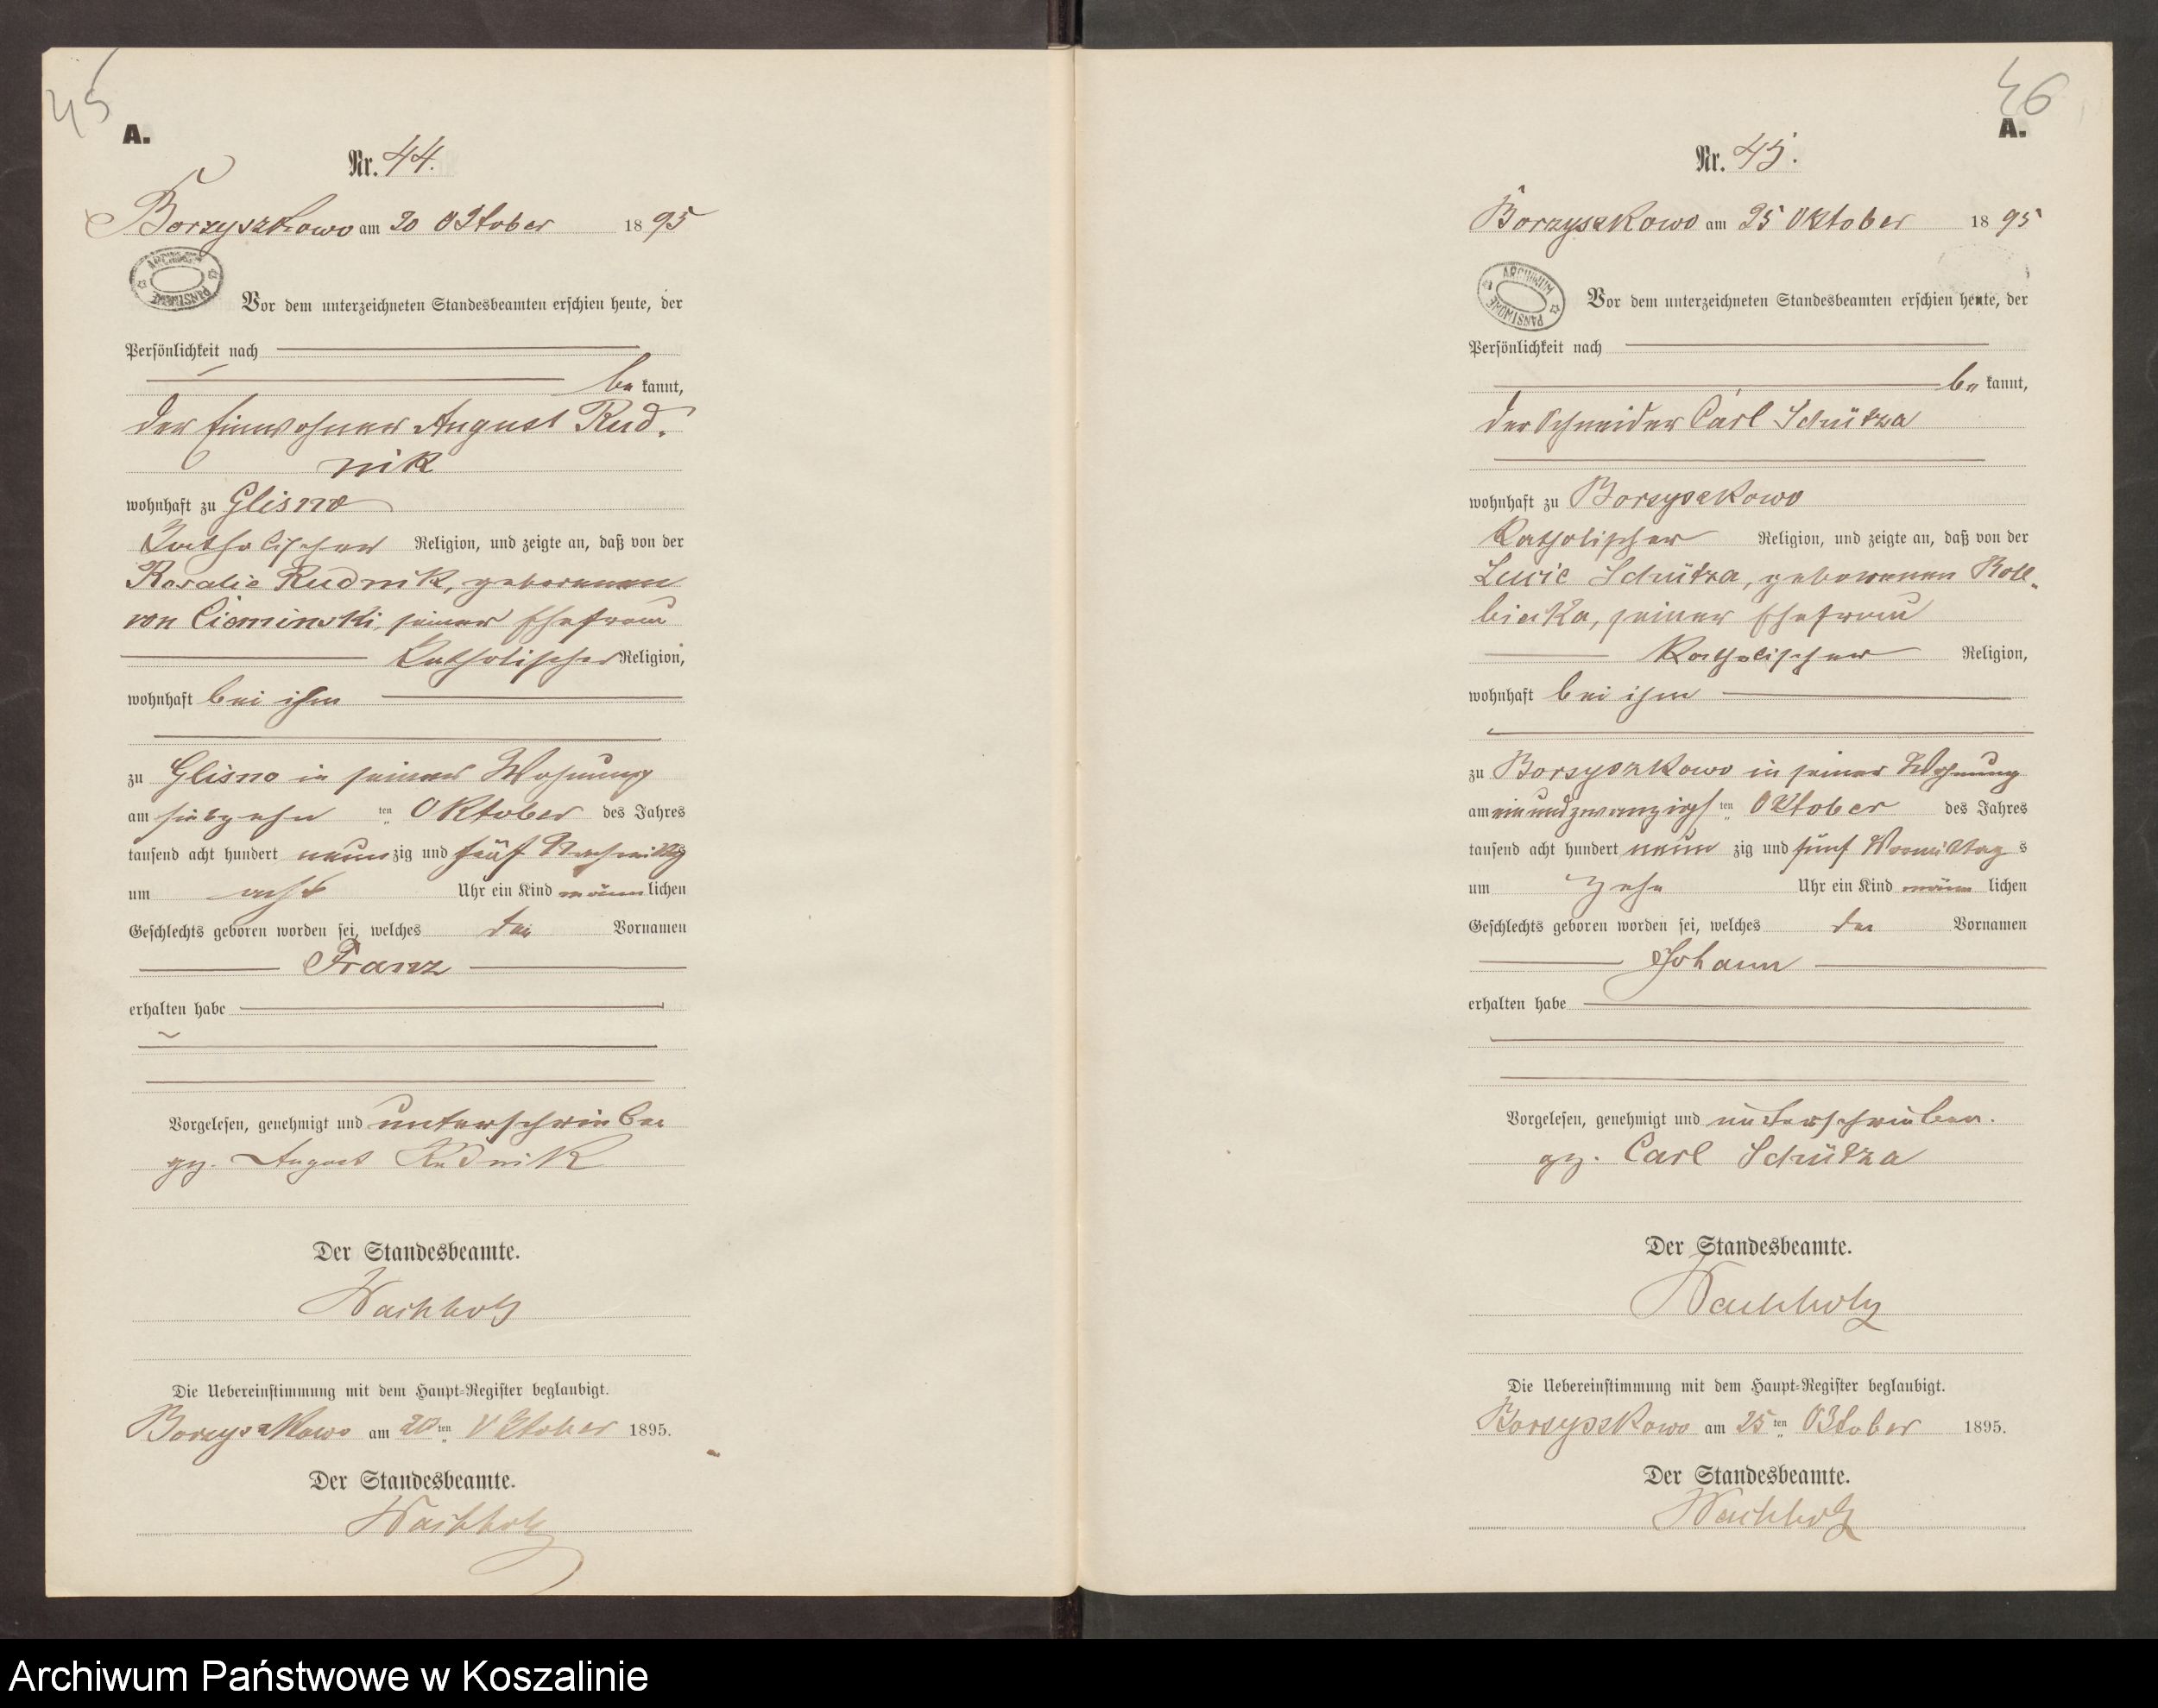 45
A.
Nr. 44.
Borzyszkowo am 20 Oktober 1895
ARCHIWUM PAŃSTWOWE
Vor dem unterzeichneten Standesbeamten erschien heute, der
Persönlichkeit nach
be kannt,
der Einwohner August Rud-
nik
wohnhaft zu Glisno
Katholischer Religion, und zeigte an, daß von der
Rosalie Rudnik, geborenen
von Cieminski, seiner Ehefrau
Katholischer Religion,
wohnhaft bei ihm
zu Glisno in seiner Wohnung
am siebzehn ten Oktober des Jahres
tausend acht hundert neun zig und fünf Nachmittag
um acht Uhr ein Kind männ lichen
Geschlechts geboren worden sei, welches den Vornamen
Franz
erhalten habe
Vorgelesen, genehmigt und unterschrieben
gz. August Rudnik
Der Standesbeamte.
Wachholz
Die Uebereinstimmung mit dem Haupt-Register beglaubigt.
Borzyszkowo am 20 ten Oktober 1895.
Der Standesbeamte.
Wachholz
46
A.
Nr. 45.
Borzyszkowo am 25 Oktober 1895
ARCHIWUM PAŃSTWOWE
Vor dem unterzeichneten Standesbeamten erschien heute, der
Persönlichkeit nach
be kannt,
der Schneider Carl Schütza
wohnhaft zu Borzyszkowo
Katholischer Religion, und zeigte an, daß von der
Schütza, geborenen
seiner Ehefrau
Katholischer Religion,
wohnhaft bei ihm
zu Borzyszkowo in seiner Wohnung
am einundzwanzigs ten Oktober des Jahres
tausend acht hundert neun zig und fünf Vormittag s
um zehn Uhr ein Kind männ lichen
Geschlechts geboren worden sei, welches den Vornamen
Johann
erhalten habe
Vorgelesen, genehmigt und unterschrieben.
gz. Carl Schütza
Der Standesbeamte.
Wachholz
Die Uebereinstimmung mit dem Haupt-Register beglaubigt.
Borzyszkowo am 25 ten Oktober 1895.
Der Standesbeamte.
Wachholz
Archiwum Państwowe w Koszalinie